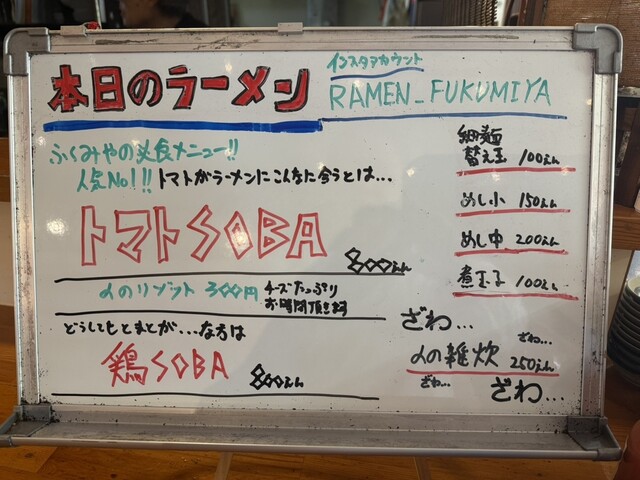 本日のラーメン
インスタアカウント
RAMEN_FUKUMIYA
ふくみやの必食メニュー!!
人気No1!! トマトがラーメンにこんなに合うとは...
トマトSOBA
800えん
〆のリゾット 300円
チーズたっぷり
お時間頂きます
どうしてもとまとが...な方は
鶏SOBA 800えん
細麺
替え玉 100えん
めし小 150えん
めし中 200えん
煮玉子 100えん
ざわ...
ざわ...
〆の雑炊 250えん
ざわ...
ざわ...